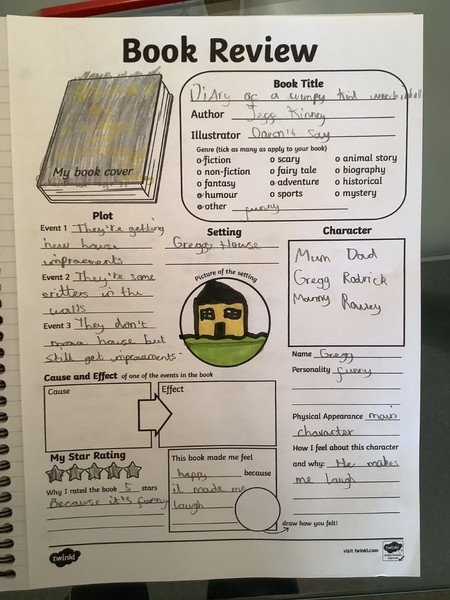 Book Review
Book Title
Diary of a wimpy kid wreckinball
Author Jegg Kinney
Illustrator Doesn't say
Genre (tick as many as apply to your book)
fiction scary animal story
non-fiction fairy tale biography
fantasy adventure historical
humour sports mystery
other funny
My book cover
Plot
Event 1 They're getting
new house
improvements
Event 2 They're some
critters in the
walls
Event 3 They don't
house but
still get improvements
Setting
Gregg House
Picture of the setting
Character
Mum Dad
Gregg Rodrick
Manny Rowley
Name Gregg
Personality funny
Physical Appearance main
character
How I feel about this character
and why: He makes
me laugh
Cause and Effect of one of the events in the book
Cause
Effect
My Star Rating
Why I rated the book 5 stars
Because it's funny
This book made me feel
happy because
it made me
laugh
draw how you felt!
twinkl
visit twinkl.com